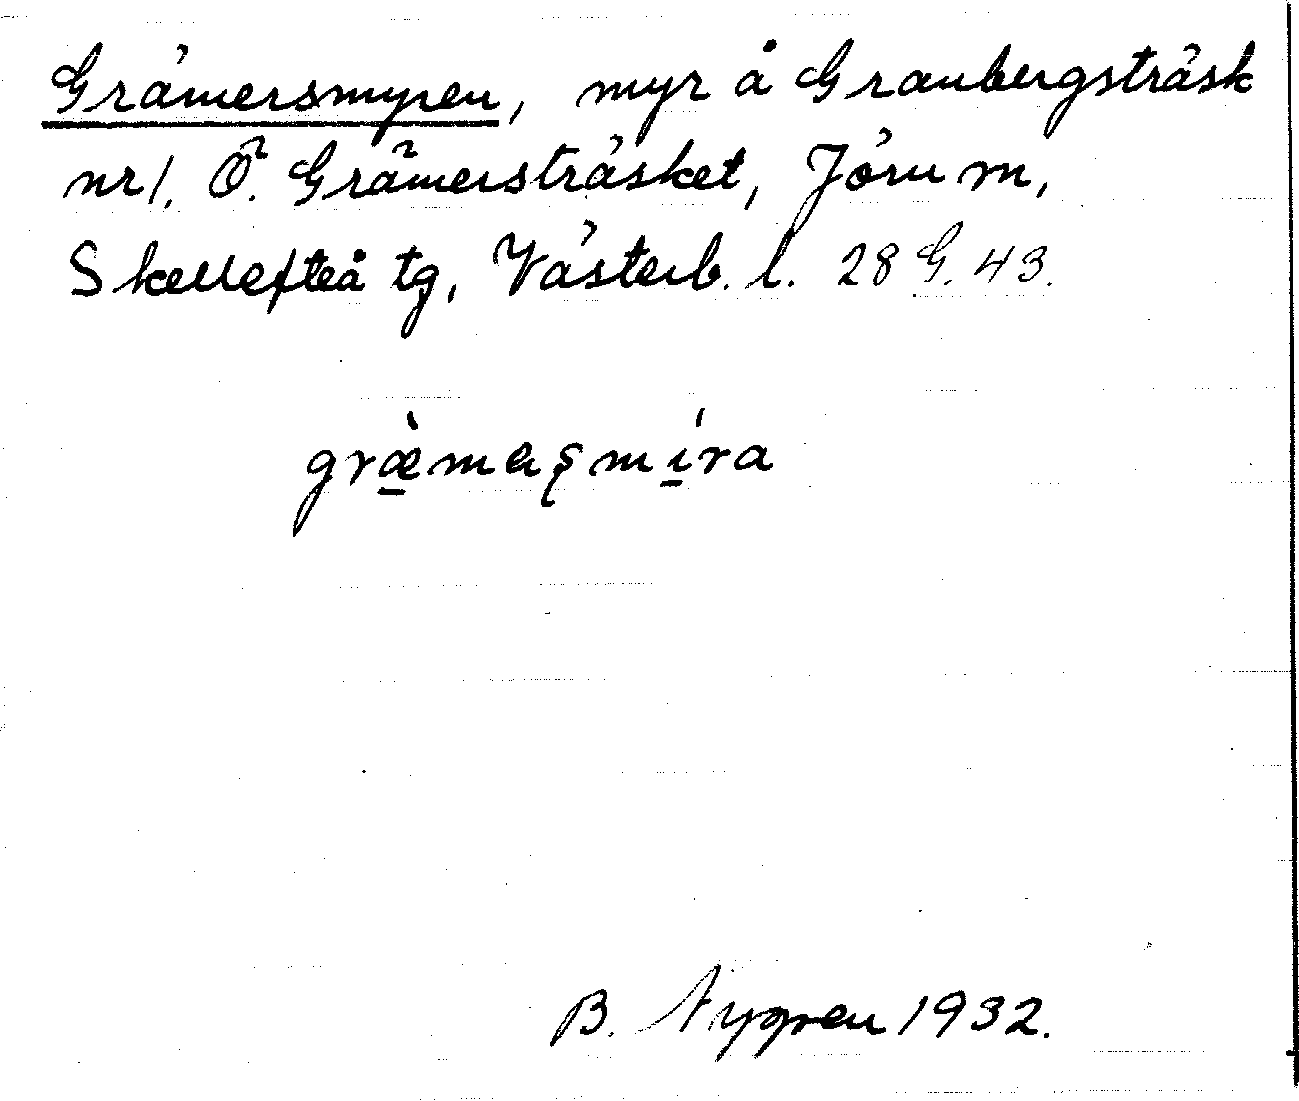 Grämersmyren, myr å Granbergsträsk
nr 1. Ö. Grämersträsket, Jörn sn,
Skellefteå tg, Västerb. l. 28 G. 43.
græ̀mas̨míra
B. Nygren 1932.